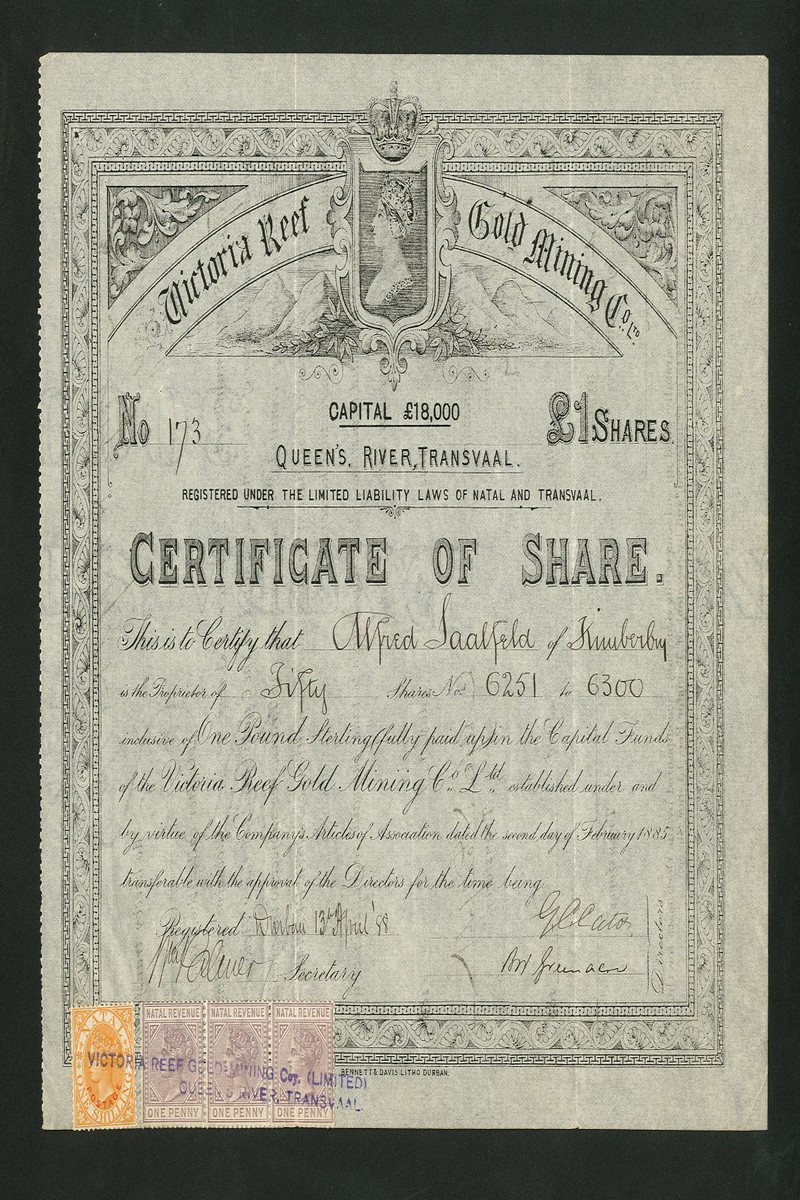 Victoria Reef Gold Mining Co. Ltd
No 173
CAPITAL £18,000
£1 SHARES
QUEEN'S, RIVER, TRANSVAAL.
REGISTERED UNDER THE LIMITED LIABILITY LAWS OF NATAL AND TRANSVAAL.
CERTIFICATE OF SHARE.
This is to Certify that Alfred Saalfeld of Kimberley
is the Proprietor of Fifty Shares Nos 6251 to 6300
inclusive of One Pound Sterling (fully paid up) in the Capital Funds
of the Victoria Reef Gold Mining Co. Ltd. established under and
by virtue of the Company's Articles of Association dated the second day of February 1885
transferable with the approval of the Directors for the time being
Registered Durban 13th April '88
Secretary
Directors
NATAL
POSTAGE
ONE SHILLING
NATAL REVENUE NATAL REVENUE NATAL REVENUE
ONE PENNY ONE PENNY ONE PENNY
VICTORIA REEF GOLD MINING Coy. (LIMITED)
QUEEN'S RIVER, TRANSVAAL.
BENNETT & DAVIS. LITHO DURBAN.